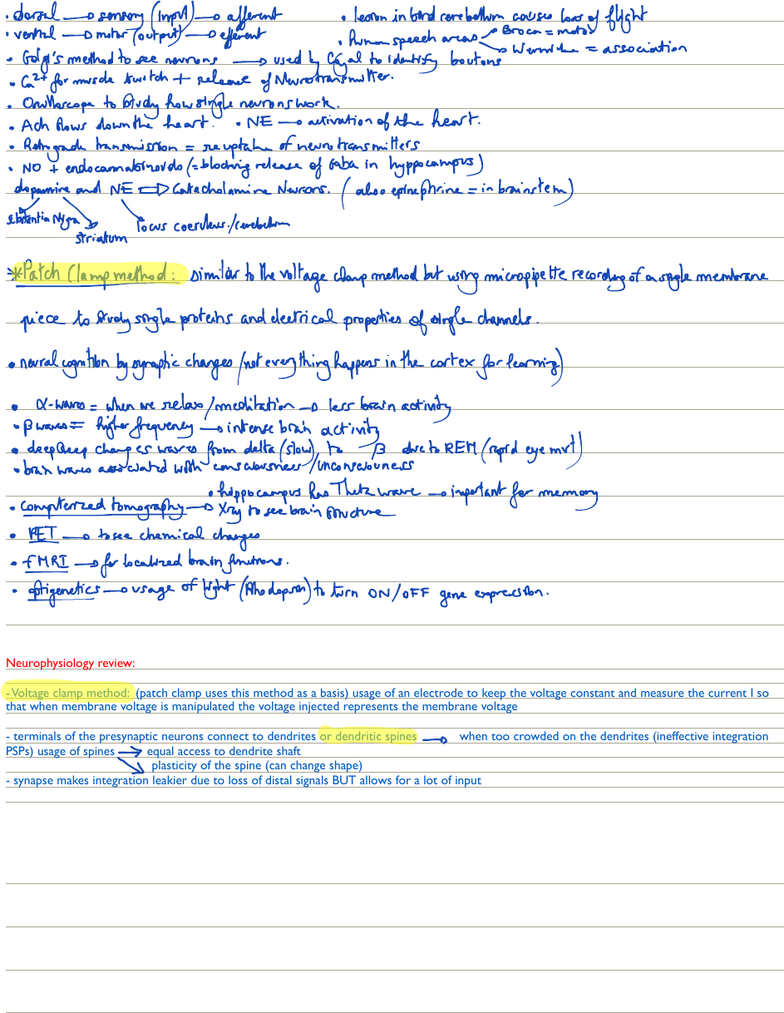 • dorsal → sensory (input) → afferent
• ventral → motor (output) → efferent
• lesion in bird cerebellum causes loss of flight
• human speech areas → Broca = motor
→ Wernicke = association
• Golgi's method to see neurons → used by Cajal to identify boutons
• Ca²⁺ for muscle twitch + release of Neurotransmitter.
• Oscilloscope to study how single neurons work.
• Ach slows down the heart. • NE → activation of the heart.
• Retrograde transmission = reuptake of neurotransmitters
• NO + endocannabinoids (= blocking release of Gaba in hyppocampus)
dopamine and NE ⇒ Catecholamine Neurons. (also epinephrine = in brainstem)
substantia Nigra
striatum
locus coeruleus/cerebellum
*Patch Clamp method: similar to the voltage clamp method but using micropipette recording of a single membrane
piece to study single proteins and electrical properties of single channels.
• neural cognition by synaptic changes (not everything happens in the cortex for learning)
• α-waves = when we relax/meditation → less brain activity
• β waves = higher frequency → intense brain activity
• deep sleep changes waves from delta (slow) to β due to REM (rapid eye mvt)
• brain waves associated with consciousness/unconsciousness
• hippocampus has Theta wave → important for memory
• computerized tomography → Xray to see brain structure
• PET → to see chemical changes
• fMRI → for localized brain functions.
• optigenetics → usage of light (Rhodopsin) to turn ON/OFF gene expression.
Neurophysiology review:
- Voltage clamp method: (patch clamp uses this method as a basis) usage of an electrode to keep the voltage constant and measure the current I so
that when membrane voltage is manipulated the voltage injected represents the membrane voltage
- terminals of the presynaptic neurons connect to dendrites or dendritic spines → when too crowded on the dendrites (ineffective integration
PSPs) usage of spines → equal access to dendrite shaft
→ plasticity of the spine (can change shape)
- synapse makes integration leakier due to loss of distal signals BUT allows for a lot of input